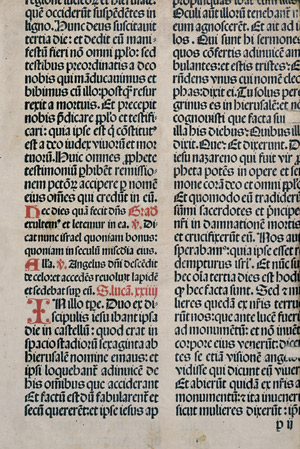 quē occiderūt suspēdētes in
ligno. Hunc deus suscitauit
tertia die: et dedit eū mani=
festū fieri nō omni pplo: sed
testibus preordinatis a deo
nobis qui māducauimus et
bibimus cū illo: postq̄ resur
rexit a mortuis. Et precepit
nobis p̄dicare pplo et testifi=
cari: quia ipse est q̄ cōstitutꝰ
est a deo iudex viuorū et mor
tuorū. Huic omnes ꝓphete
testimoniū ꝑhibēt remissio=
nem petōꝝ accipere ꝑ nomē
eius oēs qui credūt in eū.
Hec dies quā fecit dn̄s
exultemꝰ et letemur in ea. ℣. Di
cat nunc israel quoniam bonus:
quoniam in seculū mis̄dia eius.
Alla. ℣. Angelus dn̄i descēdit
de celo: et accedēs reuoluit lapidē
et sedebat suꝑ eū. S. lucā. xxiiij
In illo tpe. Duo ex di
scipulis iesu ibant ipsa
die in castellū: quod erat in
spacio stadiorū sexaginta ab
hierusalē nomine emaus: et
ipsi loquebant̄ adinuicē de
his omnibus que acciderant
Et factū est dū fabularent̄ et
secū quererēt: et ipse iesus ap
Oculi aūt illorū tenebant̄
eum agnoscerēt. Et ait ad
los. Qui sunt hi sermones
quos cōfertis adinuicē am
bulantes: et estis tristes: Et
rūdens vnus cui nomē cleo
phas: dixit ei. Tu solus pere
grinus es in hierusalē: et no
cognouisti que facta sūt
illa his diebus: Quibus ille
dixit. Que: Et dixerunt. D
iesu nazareno qui fuit vir ꝓ
pheta potēs in opere et se
mone corā deo et omni pplo
Et quomodo eū tradiderū
sūmi sacerdotes et p̄ncipes
nr̄i in damnationē mortis
et crucifixerūt eū. Nos aūt
sperabamꝰ: quia ipse esset
dempturus isrl̄. Et nūc sup
hec oīa tertia dies est hodie
q̄ hec facta sunt. Sed et mu
lieres quedā ex nr̄is terrue
rūt nos: que ante lucē fuerūt
ad monumētū: et nō inuēto
corpore eius venerūt: dicē
tes se etiā visionē angeloꝝ
vidisse qui dicunt eū viuere
Et abierūt quidā ex nr̄is a
monumētū: et ita inuenerūt
sicut mulieres dixerūt: ip̄m
p ij